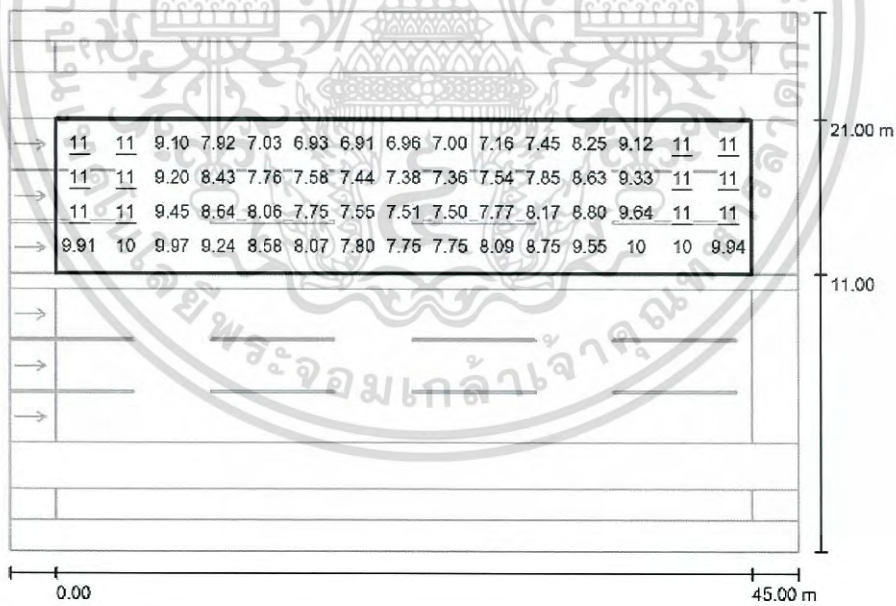 11 11 9.10 7.92 7.03 6.93 6.91 6.96 7.00 7.16 7.45 8.25 9.12 11 11
21.00 m
11 11 9.20 8.43 7.76 7.58 7.44 7.38 7.36 7.54 7.85 8.63 9.33 11 11
11 11 9.45 8.64 8.06 7.75 7.55 7.51 7.50 7.77 8.17 8.80 9.64 11 11
9.91 10 9.97 9.24 8.58 8.07 7.80 7.75 7.75 8.09 8.75 9.55 10 10 9.94
11.00
0.00 45.00 m